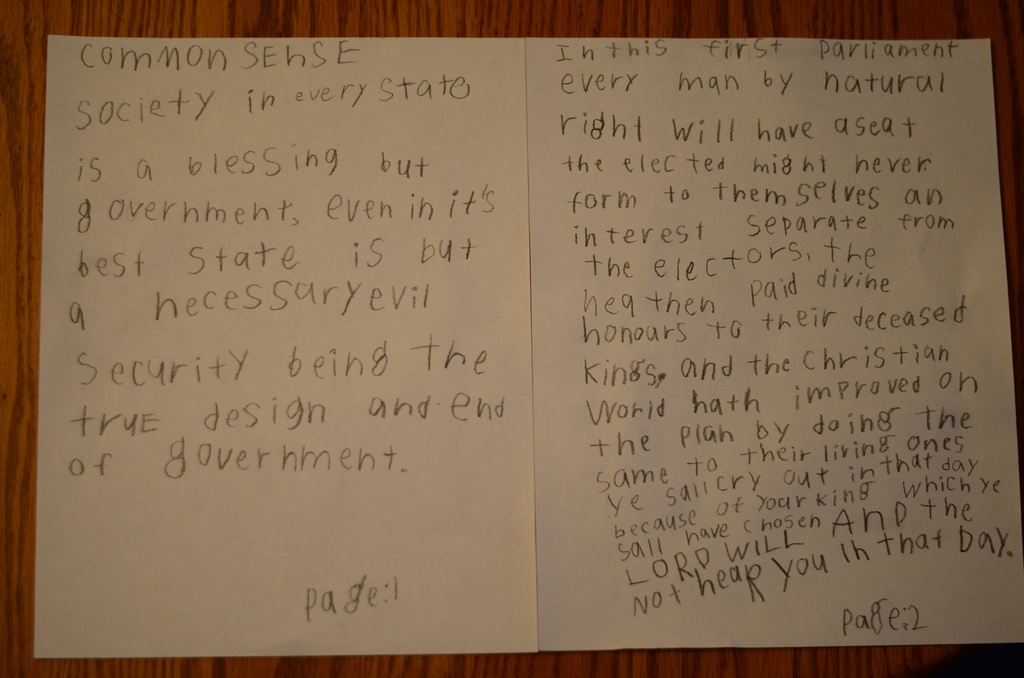 COMMON SENSE
society in every state
is a blessing but
government, even in it's
best state is but
a necessary evil
security being the
truE design and end
of government.
page:1
In this first parliament
every man by natural
right will have a seat
the elected might never
form to themselves an
interest separate from
the electors, the
heathen paid divine
honours to their deceased
kings, and the christian
World hath improved on
the plan by doing the
same to their living ones
ye sall cry out in that day
because of your king which ye
sall have chosen AND the
LORD WILL
Not heaR you in that Day.
page:2